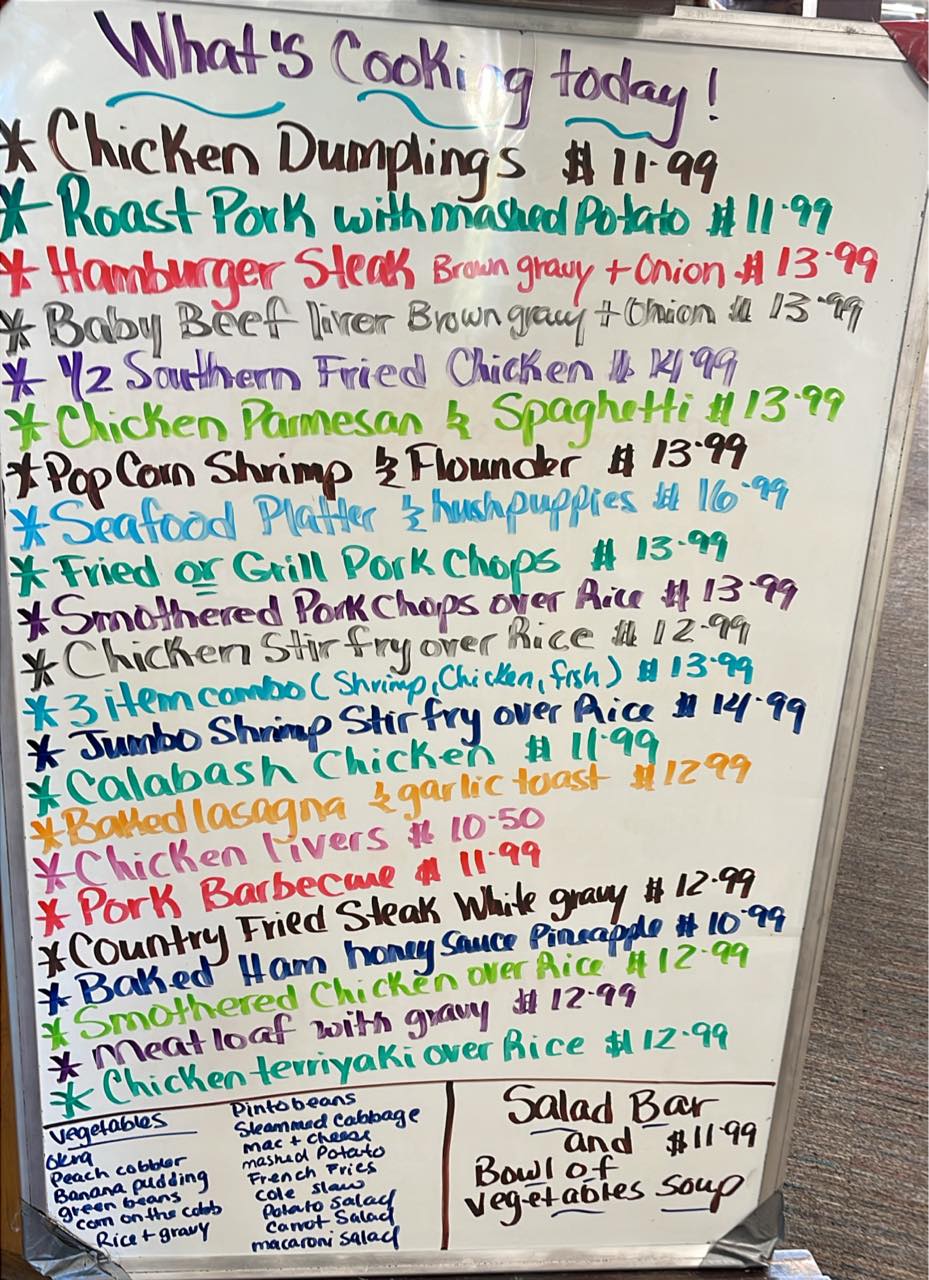 What's Cooking today!
* Chicken Dumplings $11.99
* Roast Pork with mashed Potato $11.99
* Hamburger Steak Brown gravy + Onion $13.99
* Baby Beef liver Brown gravy + Onion $13.99
* 1/2 Southern Fried Chicken $14.99
* Chicken Parmesan & Spaghetti $13.99
* Pop Corn Shrimp & Flounder $13.99
* Seafood Platter & hushpuppies $16.99
* Fried or Grill Pork Chops $13.99
* Smothered Pork Chops over Rice $13.99
* Chicken Stir fry over Rice $12.99
* 3 item combo (Shrimp, Chicken, fish) $13.99
* Jumbo Shrimp Stir fry over Rice $14.99
* Calabash Chicken $11.99
* Baked lasagna & garlic toast $12.99
* Chicken livers $10.50
* Pork Barbecue $11.99
* Country Fried Steak White gravy $12.99
* Baked Ham honey Sauce Pineapple $10.99
* Smothered Chicken over Rice $12.99
* Meat loaf with gravy $12.99
* Chicken terriyaki over Rice $12.99
Vegetables
Okra
Peach cobbler
Banana pudding
green beans
corn on the cobb
Rice + gravy
Pinto beans
Steammed Cabbage
mac + cheese
mashed Potato
French Fries
cole slaw
Potato Salad
Carrot Salad
macaroni salad
Salad Bar
and $11.99
Bowl of
vegetables soup